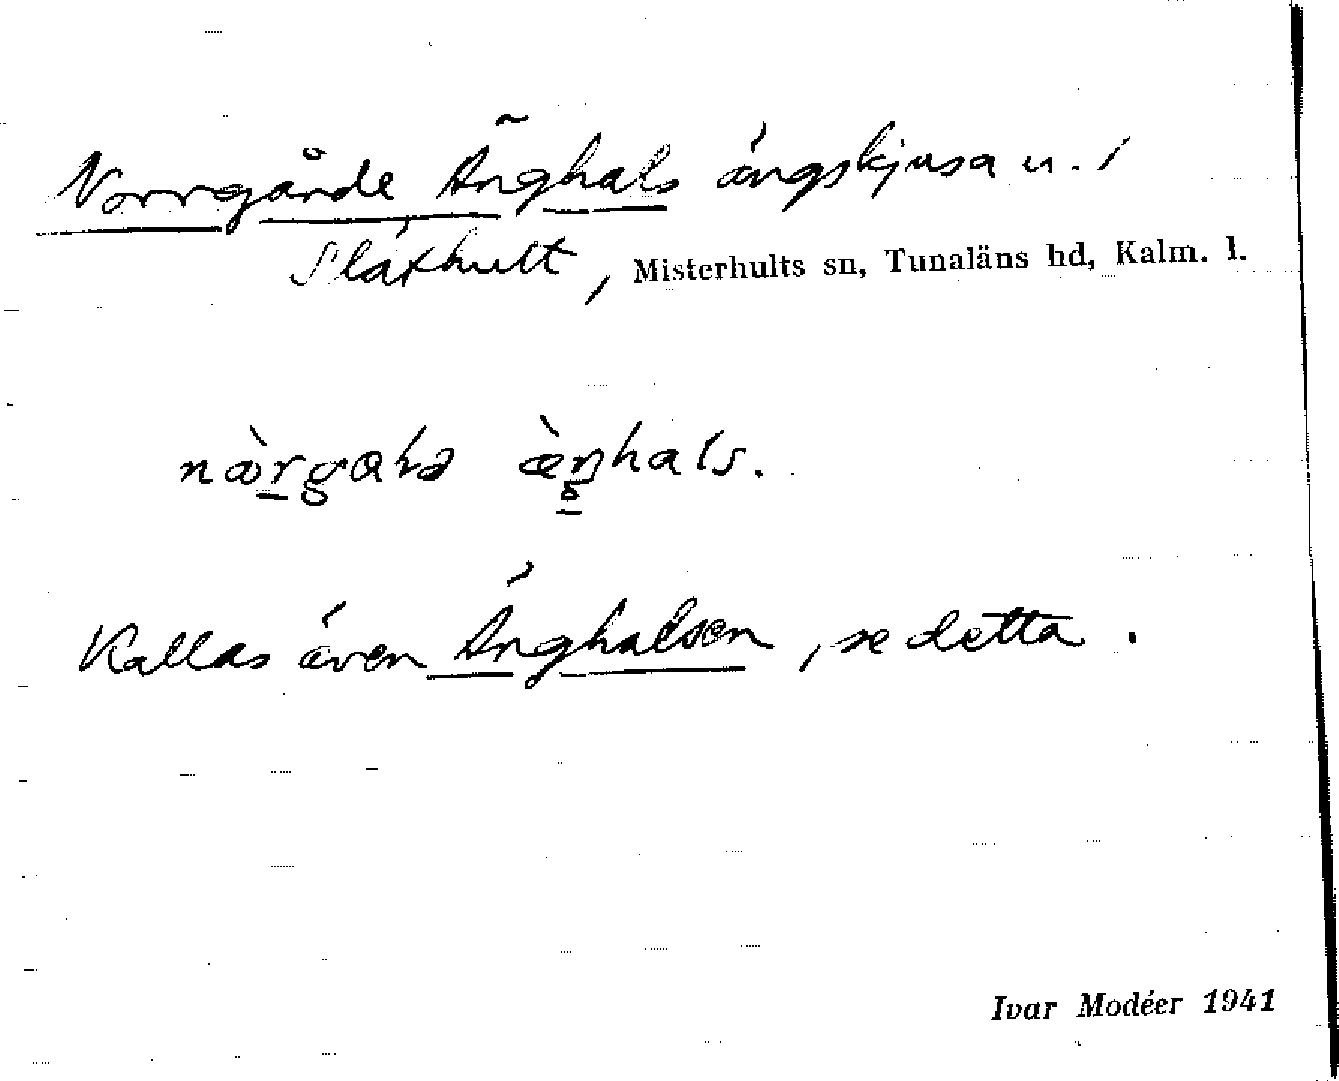 Norrgårde Änghals ängskjusa u. /
Släthult, Misterhults sn, Tunaläns hd, Kalm. l.
Kallas även Änghalsen, se detta.
Ivar Modéer 1941